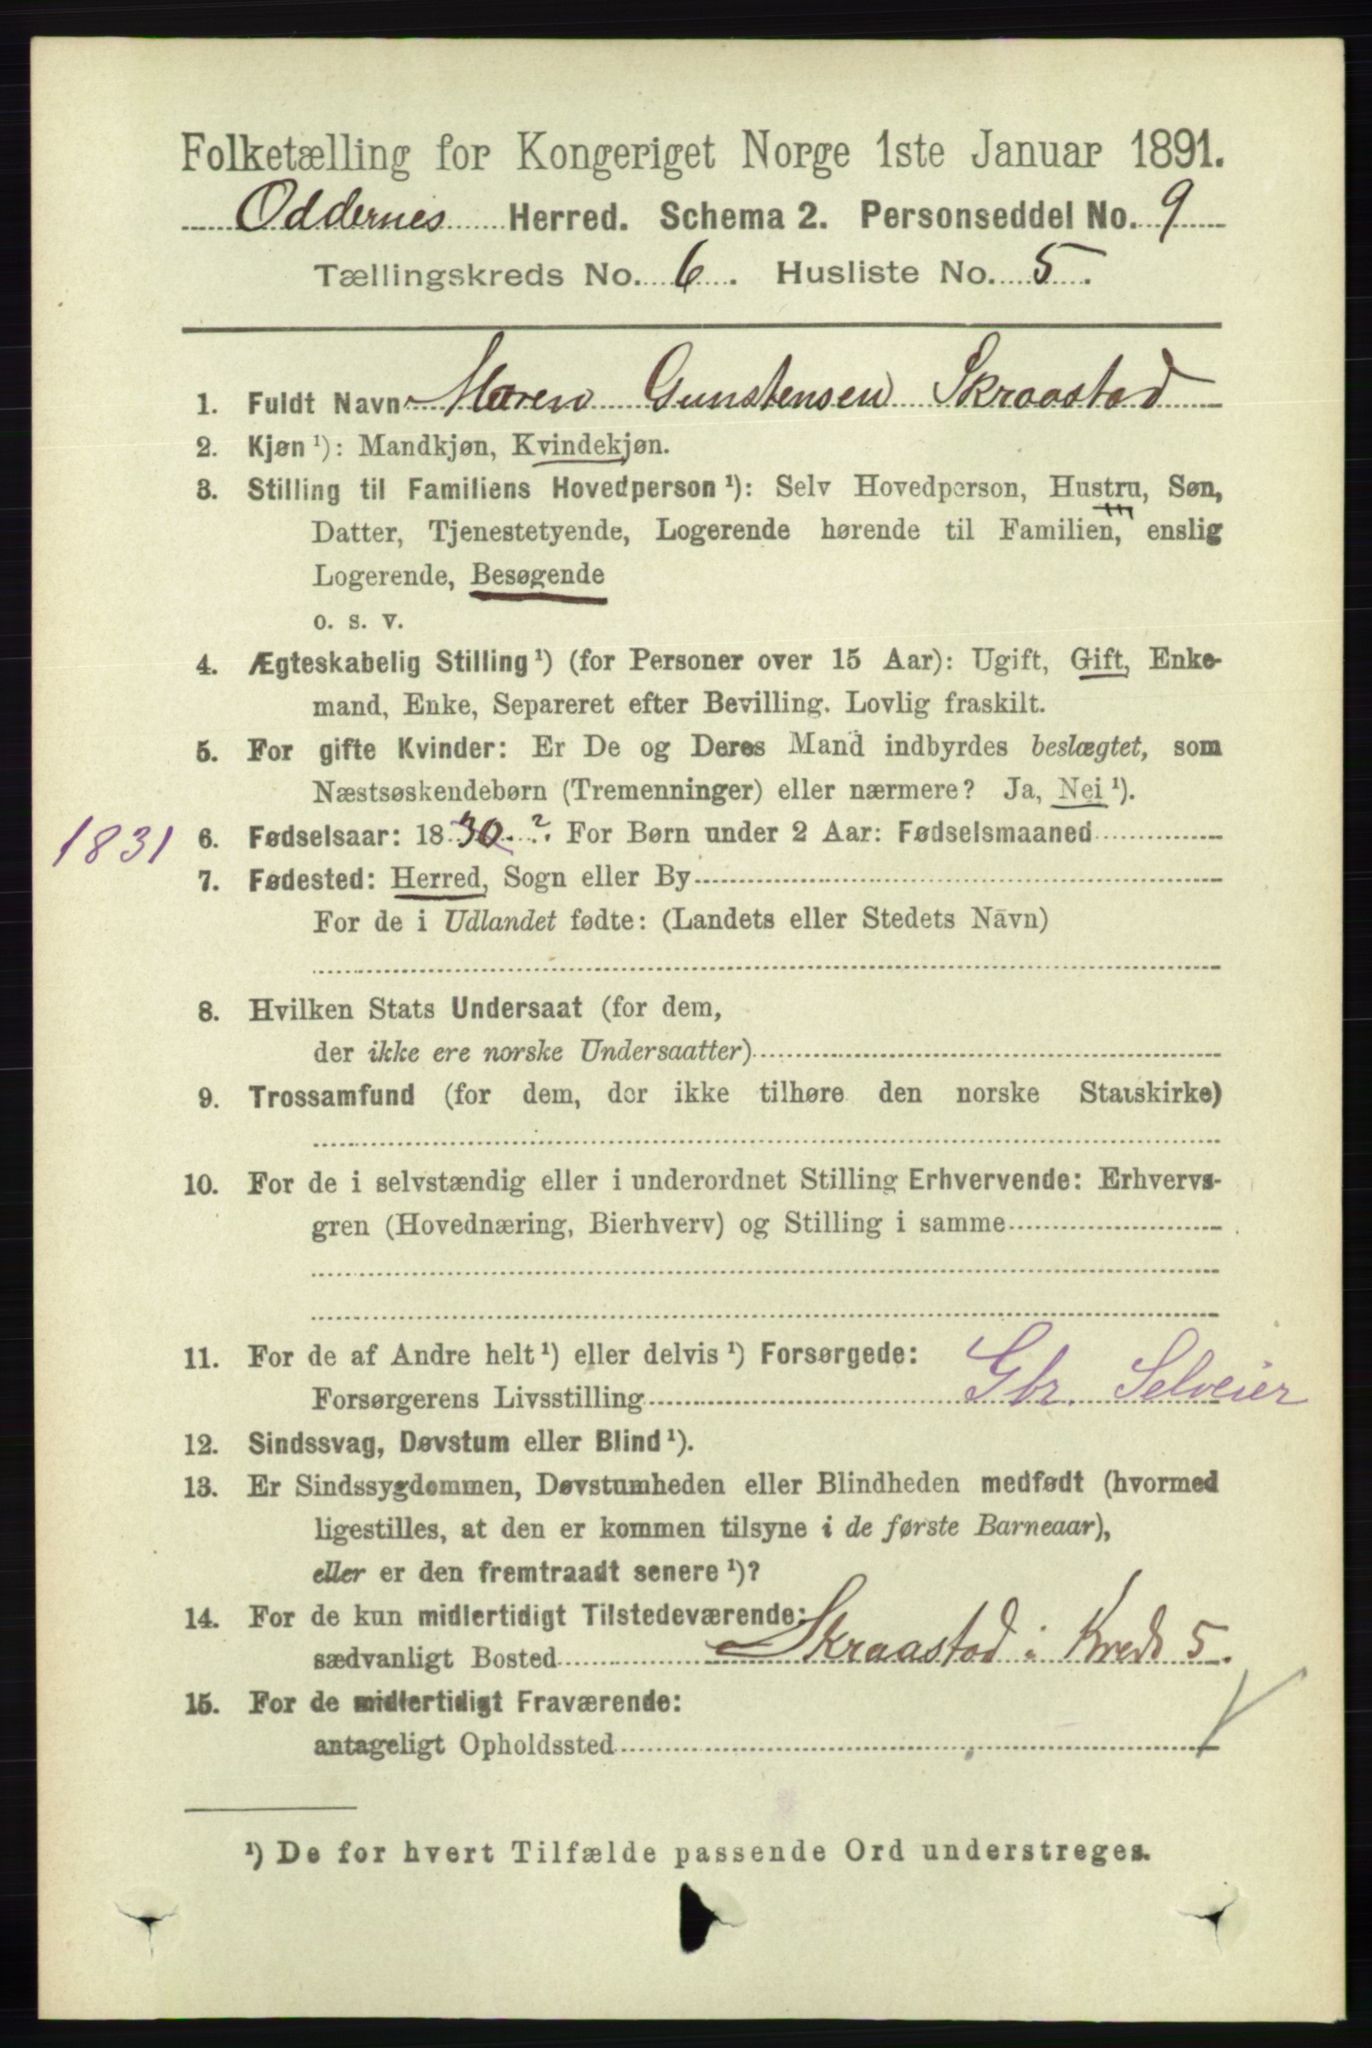 Folketælling for Kongeriget Norge 1ste Januar 1891.
Oddernes Herred. Schema 2. Personseddel No. 9
Tællingskreds No. 6. Husliste No. 5.
1. Fuldt Navn Maren Gunstensen Skraastad
2. Kjøn ¹): Mandkjøn, Kvindekjøn.
3. Stilling til Familiens Hovedperson ¹): Selv Hovedperson, Hustru, Søn,
Datter, Tjenestetyende, Logerende hørende til Familien, enslig
Logerende, Besøgende
o. s. v.
4. Ægteskabelig Stilling ¹) (for Personer over 15 Aar): Ugift, Gift, Enke-
mand, Enke, Separeret efter Bevilling. Lovlig fraskilt.
5. For gifte Kvinder: Er De og Deres Mand indbyrdes beslægtet, som
Næstsøskendebørn (Tremenninger) eller nærmere? Ja, Nei ¹).
1831 6. Fødselsaar: 1830.?. For Børn under 2 Aar: Fødselsmaaned
7. Fødested: Herred, Sogn eller By
For de i Udlandet fødte: (Landets eller Stedets Navn)
8. Hvilken Stats Undersaat (for dem,
der ikke ere norske Undersaatter)
9. Trossamfund (for dem, der ikke tilhøre den norske Statskirke)
10. For de i selvstændig eller i underordnet Stilling Erhvervende: Erhvervs-
gren (Hovednæring, Bierhverv) og Stilling i samme
11. For de af Andre helt ¹) eller delvis ¹) Forsørgede:
Forsørgerens Livsstilling Gbr. Selveier
12. Sindssvag, Døvstum eller Blind ¹).
13. Er Sindssygdommen, Døvstumheden eller Blindheden medfødt (hvormed
ligestilles, at den er kommen tilsyne i de første Barneaar),
eller er den fremtraadt senere ¹)?
14. For de kun midlertidigt Tilstedeværende:
sædvanligt Bosted Skraastad i Kreds 5.
15. For de midlertidigt Fraværende:
antageligt Opholdssted
¹) De for hvert Tilfælde passende Ord understreges.